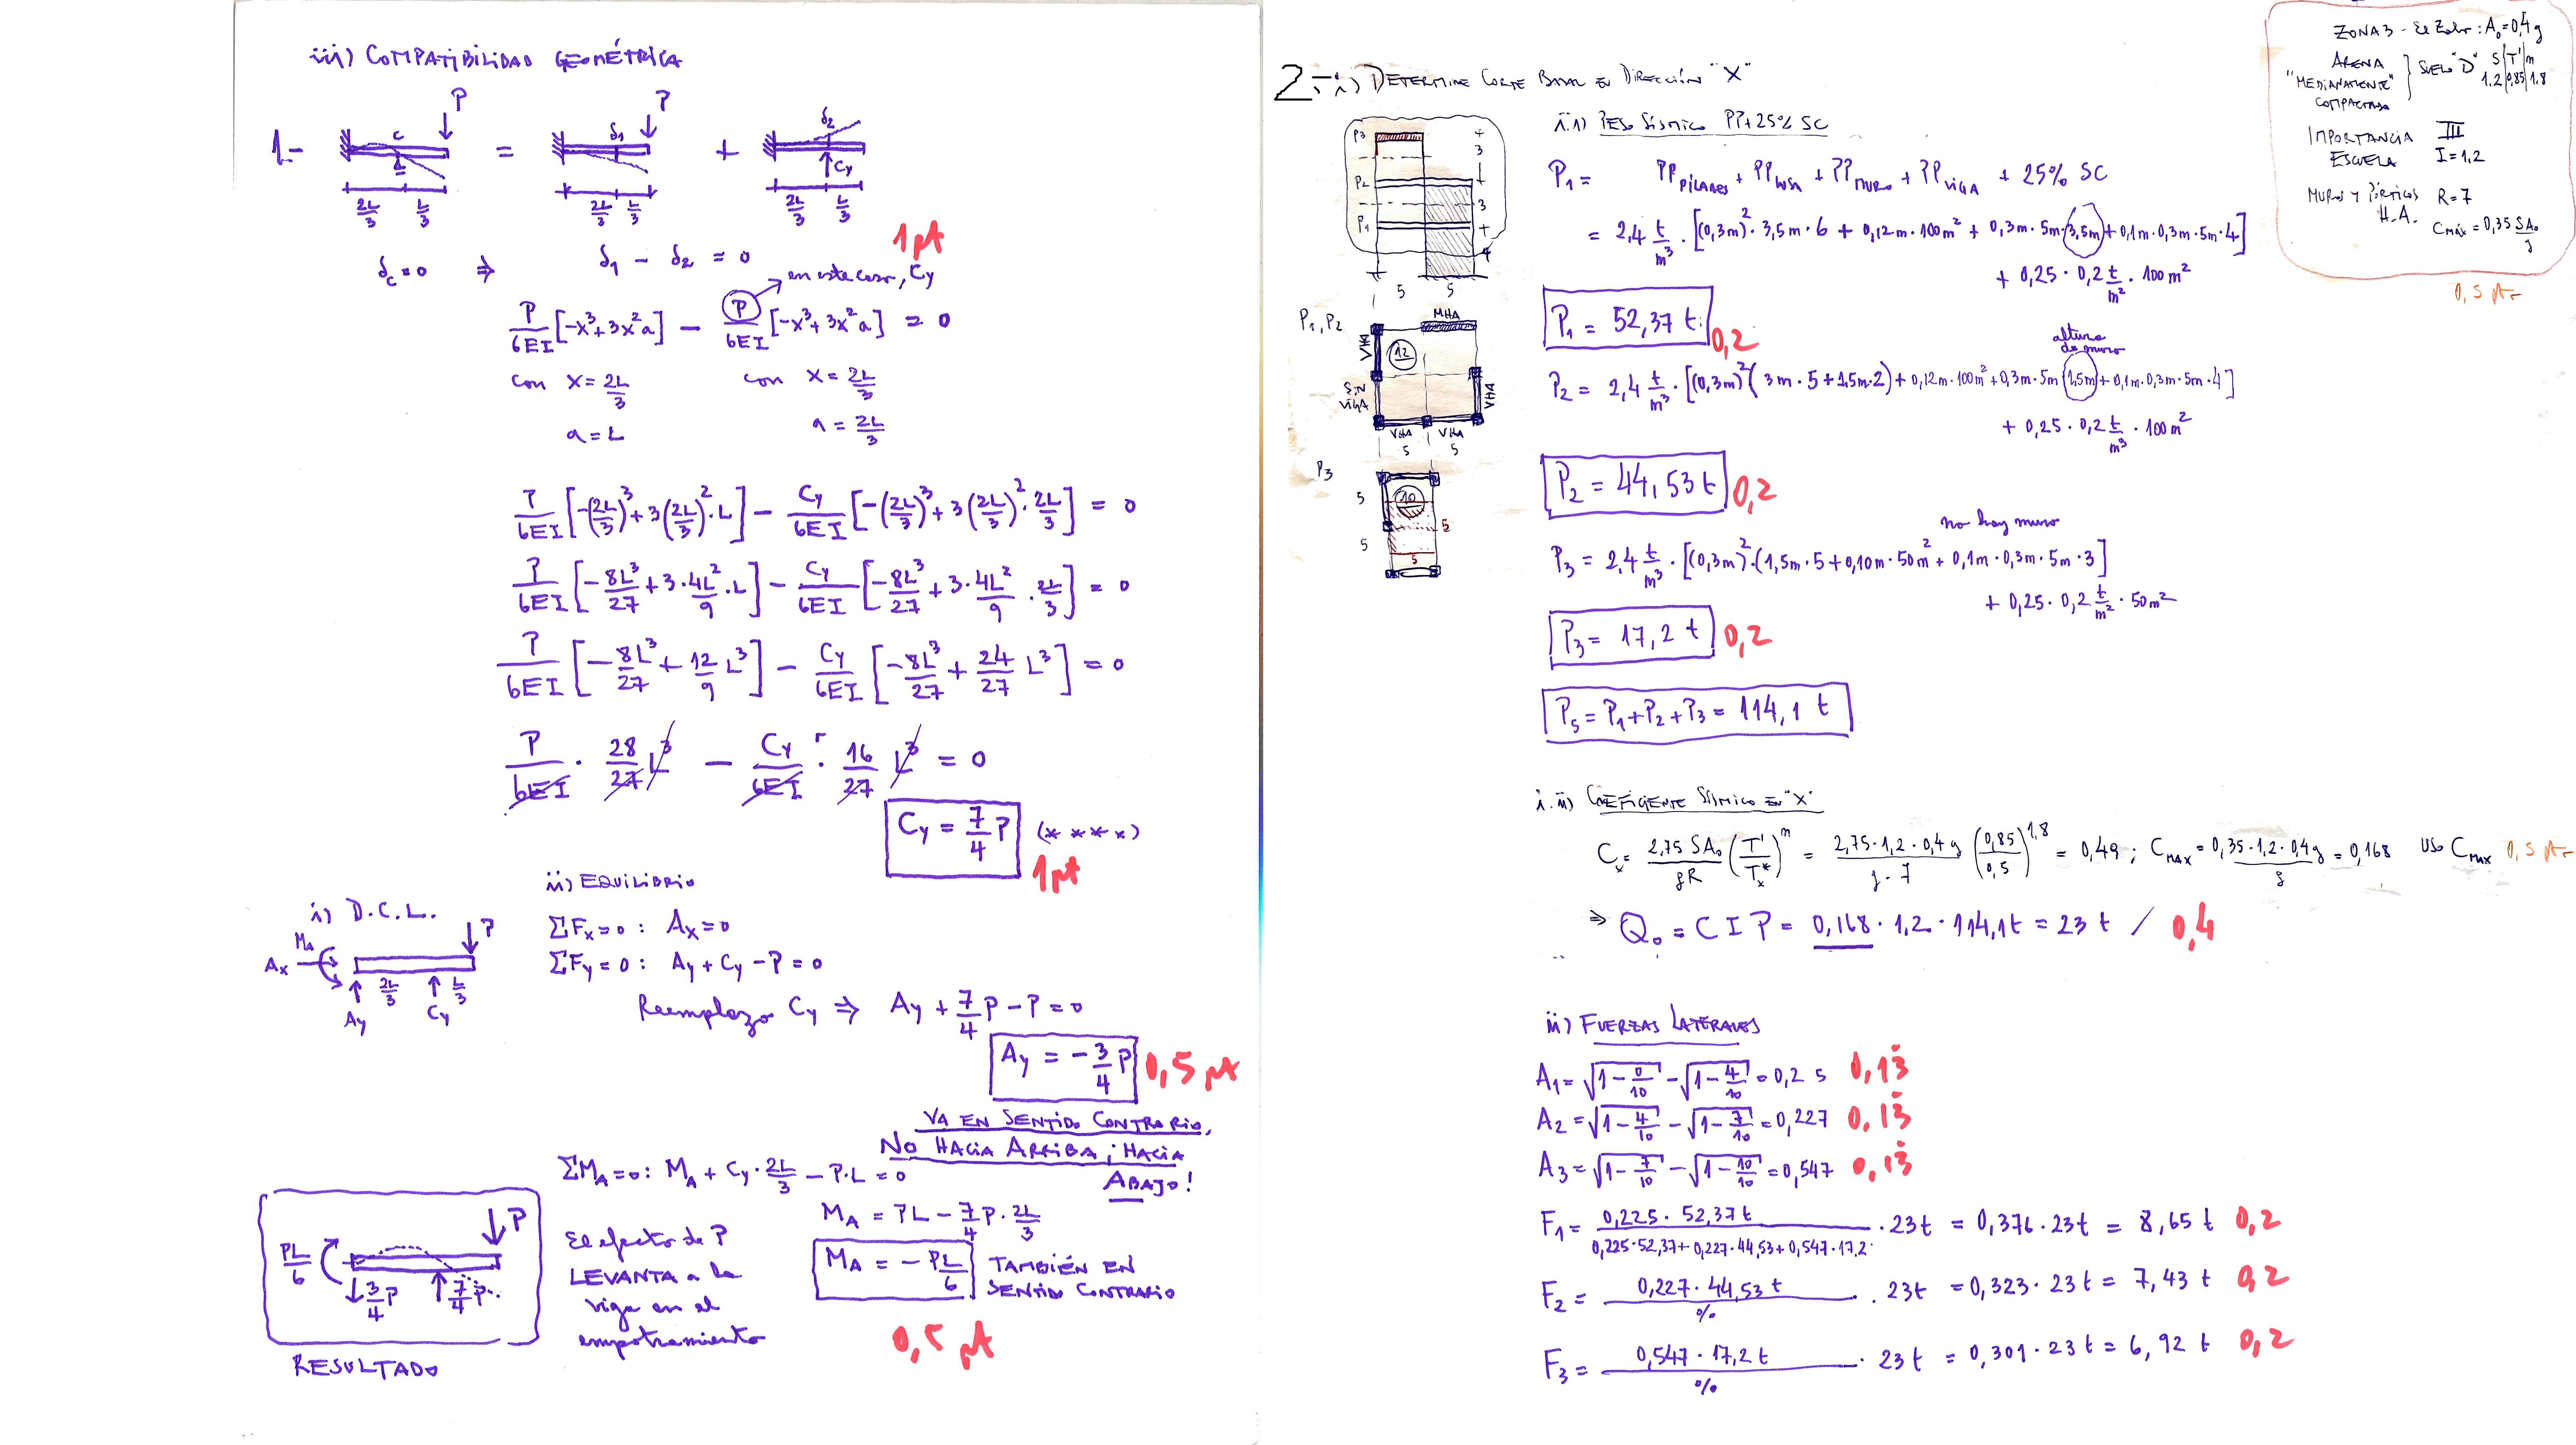 iii) COMPATIBILIDAD GEOMÉTRICA
1-
P
C
2L/3 L/3
=
P
δ1
2L/3 L/3
+
δ2
Cy
2L/3 L/3
1 pt
δc = 0 ⇒ δ1 - δ2 = 0
en este caso, Cy
P/6EI [-x³+3x²a] - P/6EI [-x³+3x²a] = 0
con x = 2L/3 con x = 2L/3
a = L a = 2L/3
P/6EI [-(2L/3)³+3(2L/3)²·L] - Cy/6EI [-(2L/3)³+3(2L/3)²·2L/3] = 0
P/6EI [-8L³/27+3·4L²/9·L] - Cy/6EI [-8L³/27+3·4L²/9·2L/3] = 0
P/6EI [-8L³/27+12/9 L³] - Cy/6EI [-8L³/27+24/27 L³] = 0
P/6EI · 28/27 L³ - Cy/6EI · 16/27 L³ = 0
Cy = 7/4 P (****)
1 pt
i) D.C.L.
MA
Ax
Ay
2L/3
Cy
L/3
P
ii) EQUILIBRIO
ΣFx=0: Ax=0
ΣFy=0: Ay+Cy-P=0
Reemplazo Cy ⇒ Ay+7/4P-P=0
Ay = -3/4 P 0,5 pt
VA EN SENTIDO CONTRARIO,
NO HACIA ARRIBA; HACIA
ABAJO!
ΣMA=0: MA + Cy·2L/3 - P·L = 0
MA = PL - 7/4P·2L/3
MA = -PL/6 TAMBIÉN EN
SENTIDO CONTRARIO
0,5 pt
PL/6
3/4P
7/4P
P
RESULTADO
El efecto de P
LEVANTA a la
viga en el
empotramiento
ZONA 3 - : A₀=0,4g
ARENA
"MEDIANAMENTE"
COMPACTADA
SUELO "D"
S|T'|m
1.2|0,85|1.8
IMPORTANCIA III
ESCUELA I=1,2
MUROS Y PÓRTICOS R=7
H.A.
Cmáx=0,35 SA₀/g
0,5 pt
2- i) DETERMINE CORTE BASAL EN DIRECCIÓN "X"
P3
P2
P1
3
3
4
5 5
P1,P2
MHA
VHA
12
SIN
VIGA
VHA
VHA VHA
5 5
P3
5
10
5
5
5
i.i) PESO SÍSMICO PP+25% SC
P1 = PP PILARES + PP LOSA + PP MURO + PP VIGA + 25% SC
= 2,4 t/m³·[(0,3m)²·3,5m·6 + 0,12m·100m² + 0,3m·5m·3,5m+0,1m·0,3m·5m·4]
+ 0,25·0,2 t/m²·100m²
P1 = 52,37 t 0,2
altura
de muro
P2 = 2,4 t/m³·[(0,3m)²(3m·5+1,5m·2)+0,12m·100m²+0,3m·5m 1,5m+0,1m·0,3m·5m·4]
+ 0,25·0,2 t/m³·100m²
P2 = 44,53 t 0,2
no hay muro
P3 = 2,4 t/m³·[(0,3m)²·(1,5m·5+0,10m·50m²+0,1m·0,3m·5m·3]
+ 0,25·0,2 t/m²·50m²
P3 = 17,2 t 0,2
Ps = P1+P2+P3 = 114,1 t
i.ii) COEFICIENTE SÍSMICO EN "X"
Cx = 2,75 SA₀/gR (T'/Tx*)^m = 2,75·1,2·0,4g/g·7 (0,85/0,5)^1,8 = 0,49; CMAX = 0,35·1,2·0,4g/g = 0,168 USO CMAX 0,5 pt
⇒ Q₀ = C I P = 0,168·1,2·114,1t = 23 t / 0,4
ii) FUERZAS LATERALES
A1 = √(1-0/10) - √(1-4/10) = 0,2 5 0,13
A2 = √(1-4/10) - √(1-7/10) = 0,227 0,13
A3 = √(1-7/10) - √(1-10/10) = 0,547 0,13
F1 = 0,225·52,37t / 0,225·52,37+0,227·44,53+0,547·17,2 · 23t = 0,376·23t = 8,65 t 0,2
F2 = 0,227·44,53 t / % · 23t = 0,323·23t = 7,43 t 0,2
F3 = 0,547·17,2t / % · 23t = 0,301·23t = 6,92 t 0,2